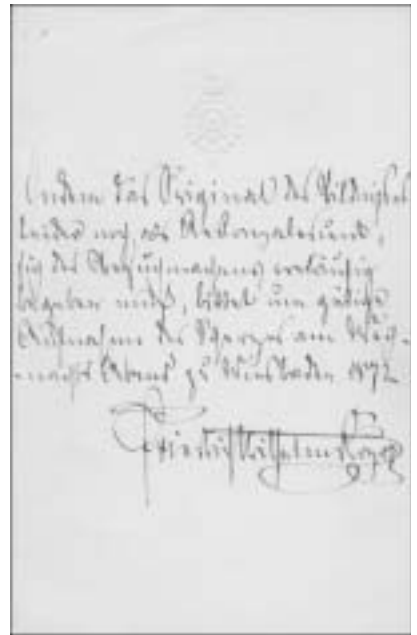 Indem das Original des Bildnisses
leider noch als Rekonvaleszent,
sich des Besuchmachens vorläufig
begeben muß, bittet um gütige
Aufnahme des Scherzes am Weih-
nachts Abend zu Wiesbaden 1872
Friedrich Wilhelm